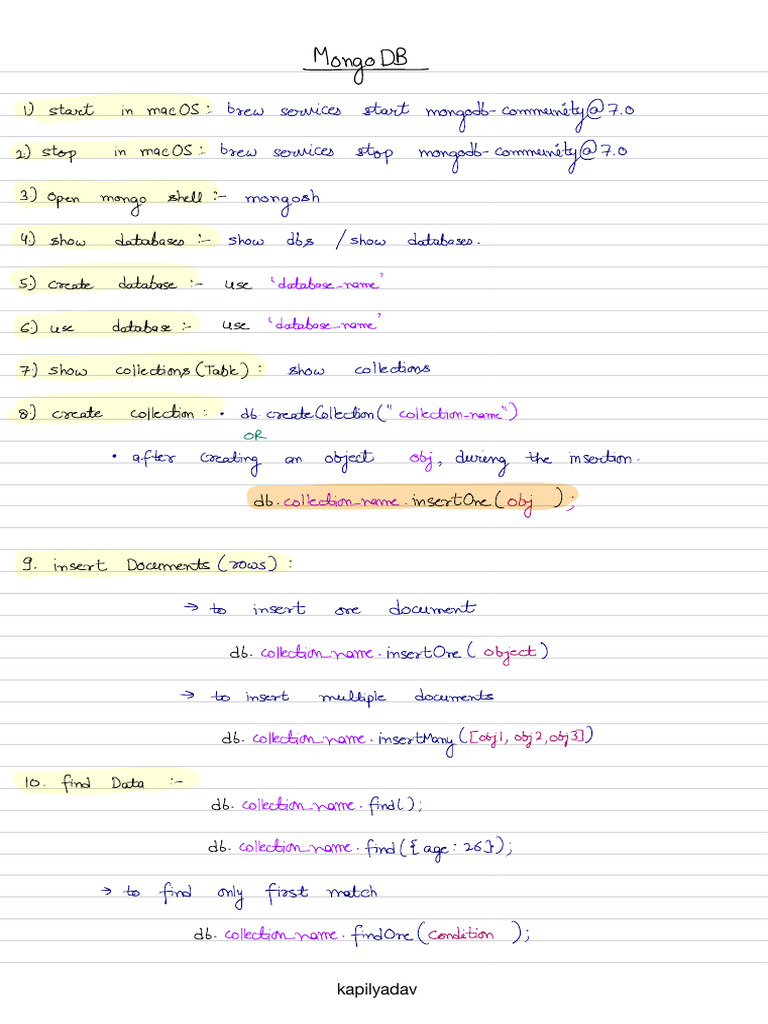 MongoDB
1) start in macOS :- brew services start mongodb-community@7.0
2) stop in macOS :- brew services stop mongodb-community@7.0
3.) open mongo shell :- mongosh
4.) show databases :- show dbs / show databases.
5.) create database :- use 'database_name'
6.) use database :- use 'database_name'
7.) show collections (Table) : show collections
8.) create collection : • db.createCollection("collection_name")
OR
• after creating an object obj, during the insertion.
db.collection_name.insertOne( obj );
9. insert Documents (rows) :
→ to insert one document
db.collection_name.insertOne( object )
→ to insert multiple documents
db.collection_name.insertMany([obj1, obj2, obj3])
10. find Data :-
db.collection_name.find();
db.collection_name.find({age: 26});
→ to find only first match
db.collection_name.findOne( condition );
kapilyadav